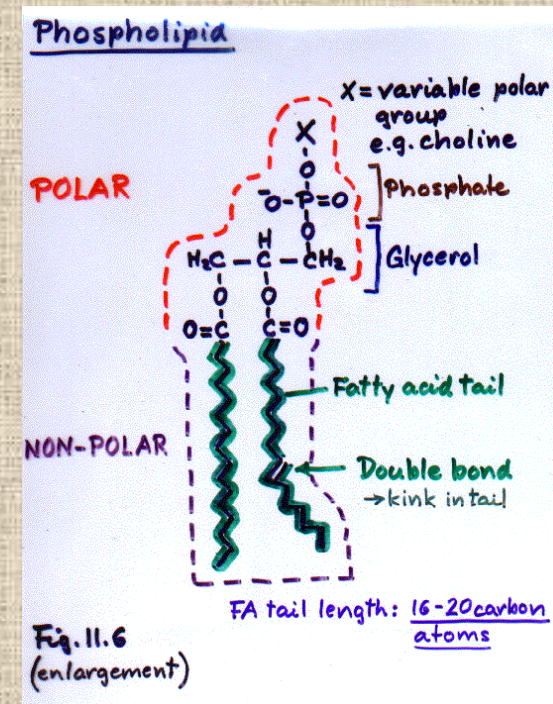 Phospholipid
X = variable polar
group
e.g. choline
X
POLAR
O
⁻O-P=O
Phosphate
O
H
H₂C - C - CH₂
Glycerol
O O
O=C C=O
Fatty acid tail
NON-POLAR
Double bond
→kink in tail
FA tail length: 16-20 carbon
atoms
Fig. 11.6
(enlargement)